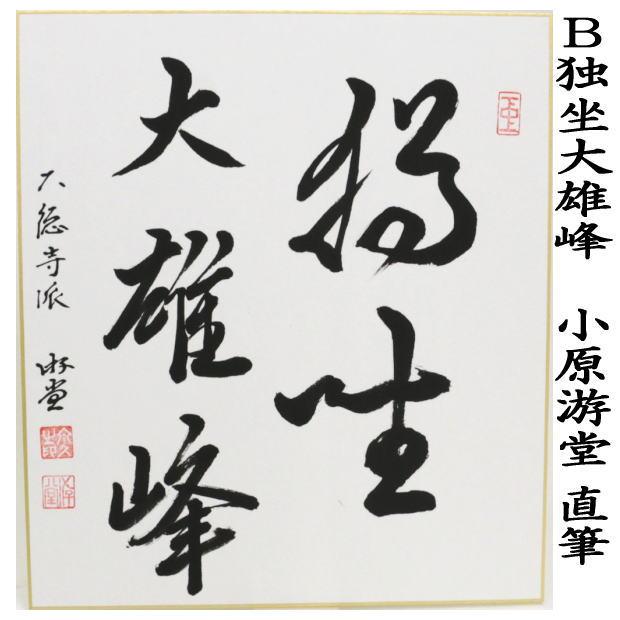 B独坐大雄峰 小原游堂 直筆
獨坐
大雄峰
大徳寺派 游堂